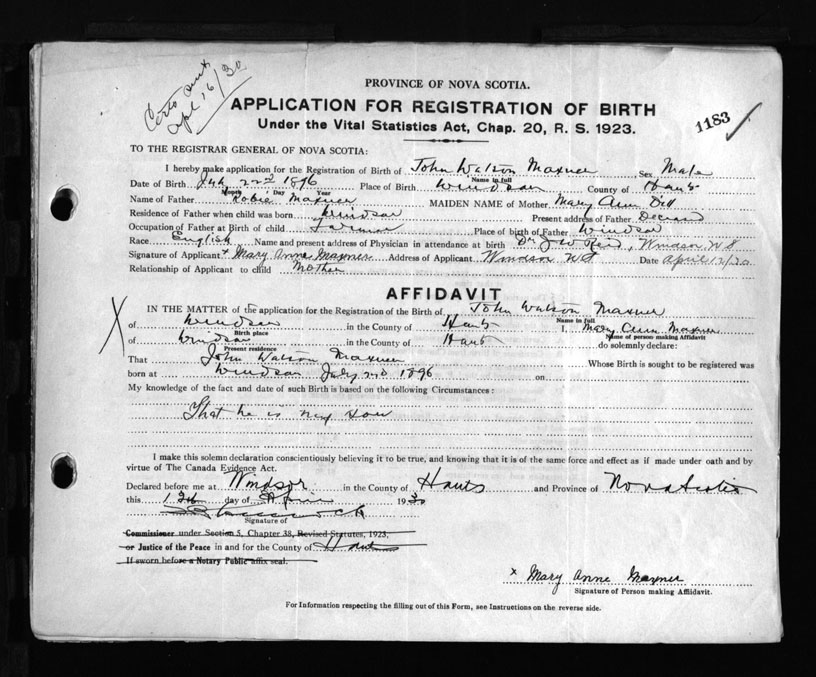 Apl 16/30
PROVINCE OF NOVA SCOTIA.
APPLICATION FOR REGISTRATION OF BIRTH
1183
Under the Vital Statistics Act, Chap. 20, R. S. 1923.
TO THE REGISTRAR GENERAL OF NOVA SCOTIA:
I hereby make application for the Registration of Birth of John Watson Maxner Sex Male
Name in full
Date of Birth July 22nd 1896 Place of Birth Windsor County of Hants
Month Day Year
Name of Father Robie Maxner MAIDEN NAME of Mother Mary Ann Dill
Residence of Father when child was born Windsor Present address of Father Deceased
Occupation of Father at Birth of child Farmer Place of birth of Father Windsor
Race English Name and present address of Physician in attendance at birth Dr J W Reid, Windsor N S
Signature of Applicant x Mary Anne Maxner Address of Applicant Windsor NS Date April 12/30
Relationship of Applicant to child Mother
AFFIDAVIT
IN THE MATTER of the application for the Registration of the Birth of John Watson Maxner
Name in full
X of Windsor in the County of Hants I, Mary Ann Maxner
Birth place Name of person making Affidavit
of Windsor in the County of Hants do solemnly declare:
Present residence
That John Watson Maxner Whose Birth is sought to be registered was
born at Windsor July 22nd 1896 on
My knowledge of the fact and date of such Birth is based on the following Circumstances:
That he is my son
I make this solemn declaration conscientiously believing it to be true, and knowing that it is of the same force and effect as if made under oath and by
virtue of The Canada Evidence Act.
Declared before me at Windsor in the County of Hants and Province of Nova Scotia
this 12th day of April 1930
Signature of
Commissioner under Section 5, Chapter 38, Revised Statutes, 1923,
or Justice of the Peace in and for the County of Hants
If sworn before a Notary Public affix seal.
x Mary Anne Maxner
Signature of Person making Affidavit.
For Information respecting the filling out of this Form, see Instructions on the reverse side.